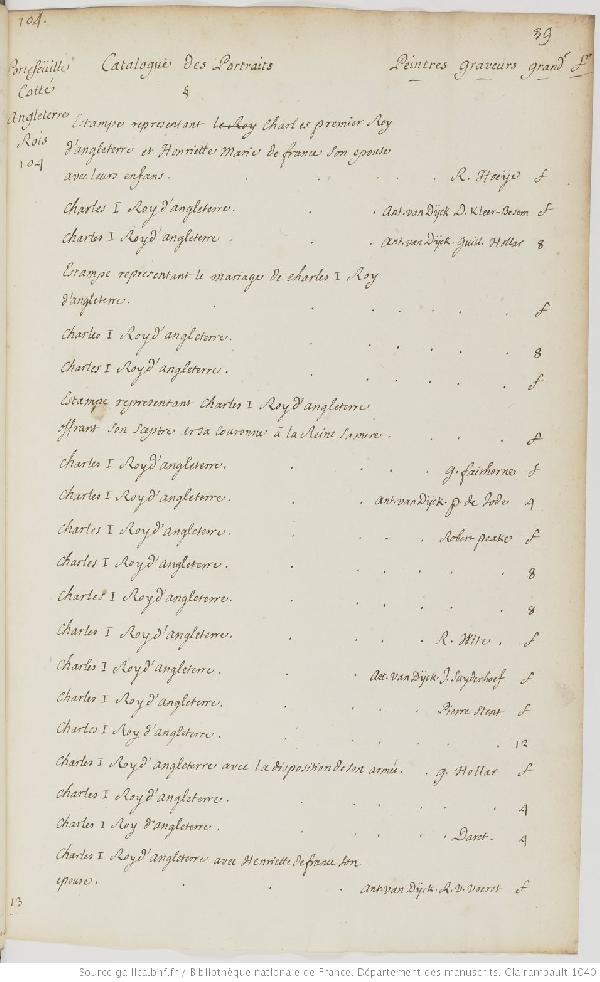 104.
39
Portefeüille Catalogue Des Portraits Peintres graveurs grandr
Cotté
Angleterre
Rois
104
Estampe representant le Roy Charles premier Roy
d'angleterre et Henriette Marie de france son epouse
avec leurs enfans. R. Hoeije f
Charles I Roy d'angleterre. Ant. van Dÿck D. Kleer-Besem f
Charles I Roy d'angleterre. Ant. van Dÿck. guill. Hollar 8
Estampe representant le mariage de charles I Roy
d'angleterre. f
Charles I Roy d'angleterre. 8
Charles I Roy d'angleterre. f
Estampe representant Charles I Roy d'angleterre
offrant son sceptre et sa couronne à la Reine f
Charles I Roy d'angleterre. g. fairhorne f
Charles I Roy d'angleterre. Ant. van Dÿck. p. de Jode 4
Charles I Roy d'angleterre. Robert peake f
Charles I Roy d'angleterre. 8
Charles I Roy d'angleterre. 8
Charles I Roy d'angleterre. R. Wite. f
Charles I Roy d'angleterre. Ant. van Dÿck. J. Suyderhoef f
Charles I Roy d'angleterre. Pierre Stent f
Charles I Roy d'angleterre. 12
Charles I Roy d'angleterre avec la disposition de son armée. g. Hollar f
Charles I Roy d'angleterre. 4
Charles I Roy d'angleterre. Daret. 4
Charles I Roy d'angleterre avec Henriette de france son
epouse. Ant. van Dÿck. R. V. Voerst f
13
Source gallica.bnf.fr / Bibliothèque nationale de France. Département des manuscrits. Clairambault 1040